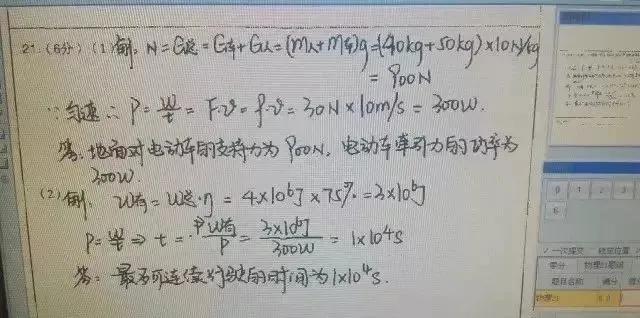 21. (6分) (1) 解: N=G总=G车+G人=(m人+m车)g=(40kg+50kg)×10N/kg
=900N
∵匀速∴P=W/t=F·v=f·v=30N×10m/s=300W.
答:地面对电动车的支持力为900N,电动车牵引力的功率为
300W
(2) 解: W有=W总·η=4×10⁶J×75%=3×10⁶J
P=W/t⇒t=W有/P=3×10⁶J/300W=1×10⁴s
答:最多可连续行驶的时间为1×10⁴s.
0 1 2 3
6
一次提交
零分
题目名称 满分